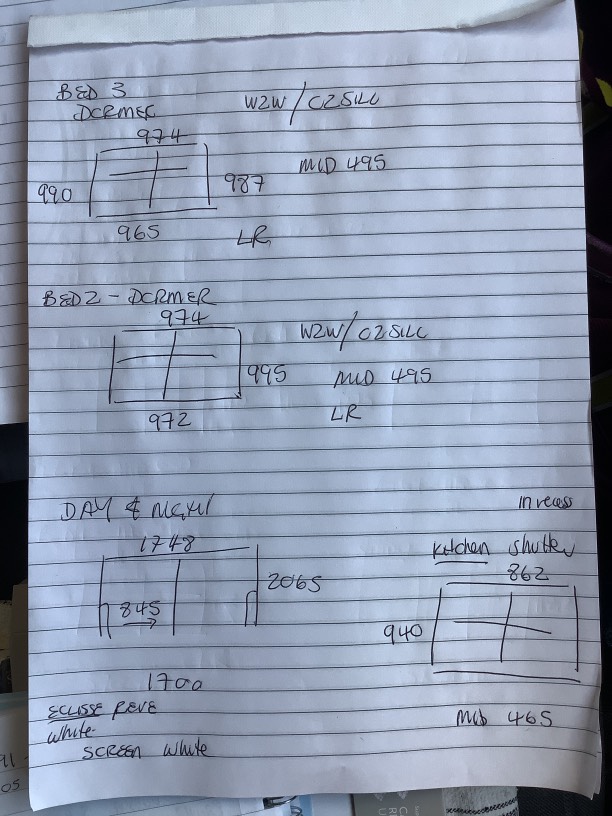 BED 3
DORMER
W2W / C2SILL
974
990
987
MID 495
965
LR
BED 2 - DORMER
974
W2W / C2SILL
995
MID 495
972
LR
DAY & NIGHT
1748
2065
845
1700
ECLISSE REVE
White
SCREEN White
In recess
Kitchen Shutter
862
940
Mid 465
91
05